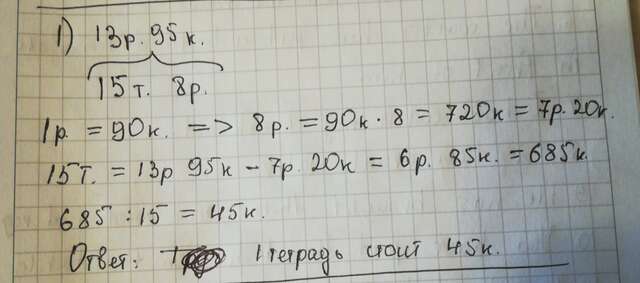 1) 13р. 95к.
15т. 8р.
1р. = 90к. => 8р. = 90к · 8 = 720к = 7р. 20к.
15т. = 13р 95к - 7р. 20к = 6р. 85к. = 685к.
685 : 15 = 45к.
Ответ: 1 тетрадь стоит 45к.